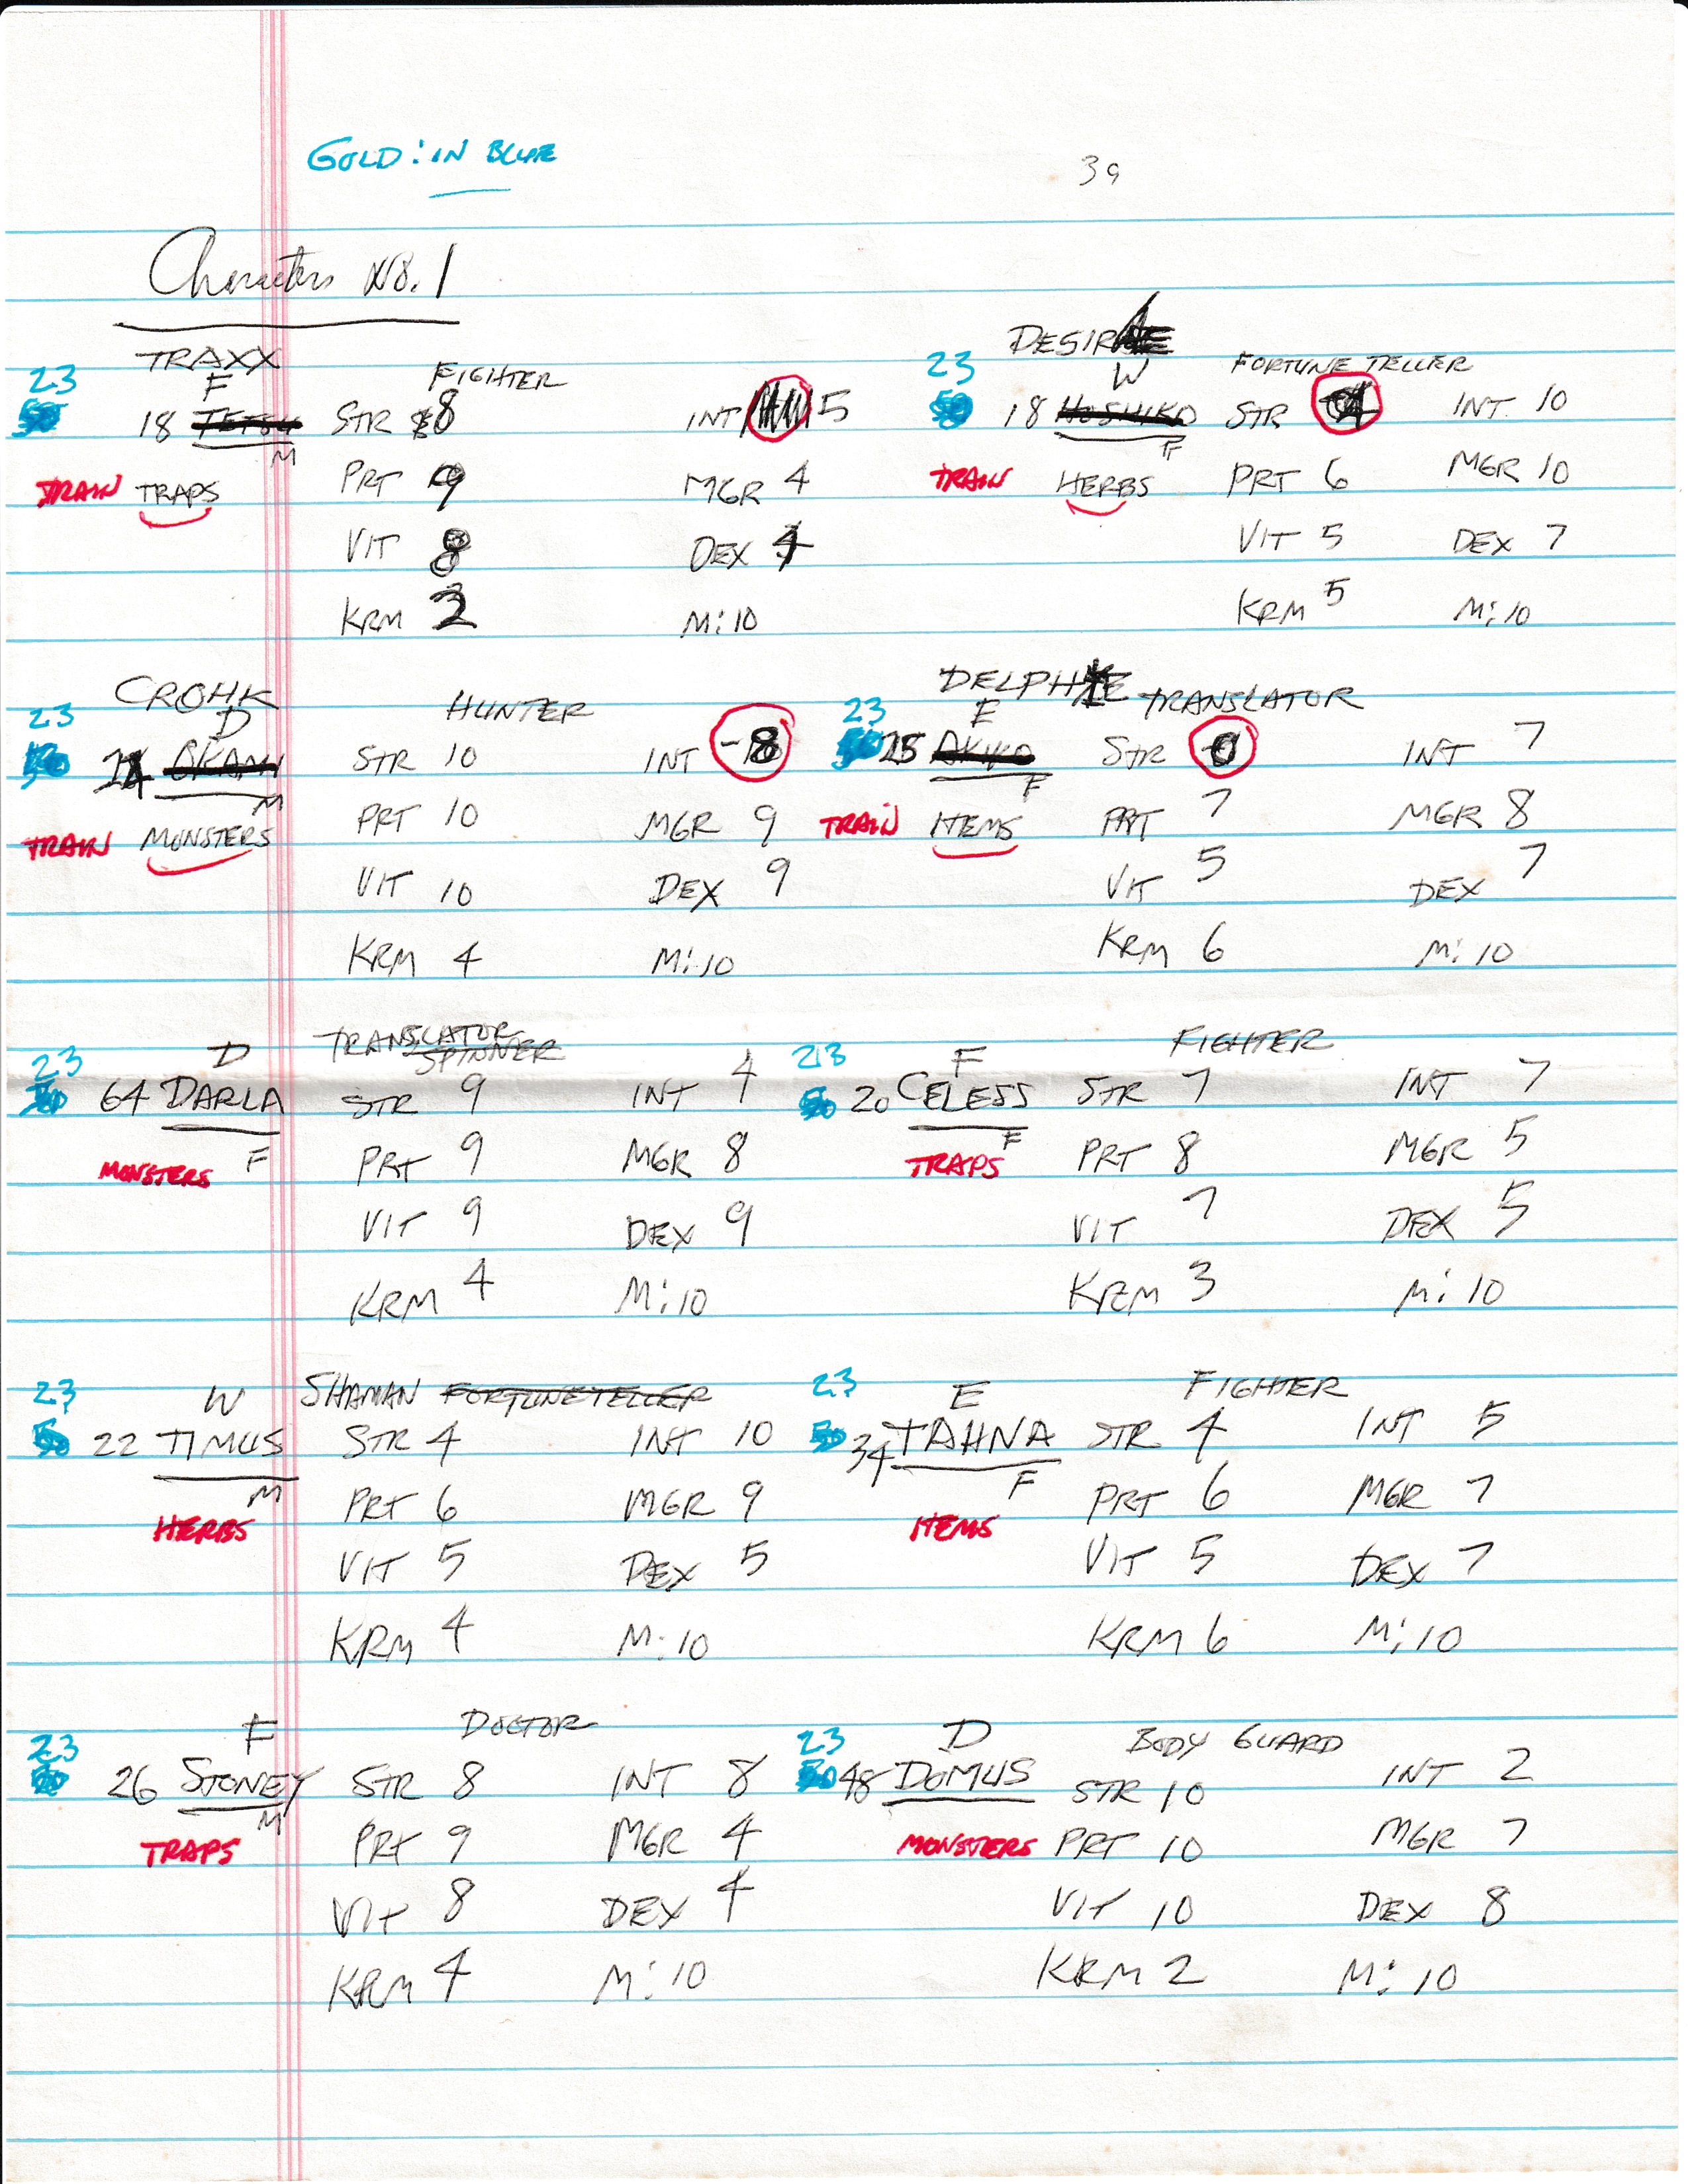 GOLD: IN BLUE
39
Characters No. 1
TRAXX
23 F FIGHTER
18 TETSU STR 8 INT 5
M
TRAIN TRAPS PRT 9 MGR 4
VIT 8 DEX 4
KRM 2 M: 10
DESIRAE
23 W FORTUNE TELLER
18 HOSHIKO STR 4 INT. 10
F
TRAIN HERBS PRT 6 MGR 10
VIT 5 DEX 7
KRM 5 M: 10
CROHK
23 D HUNTER
OKAMI STR 10 INT -8
M
TRAIN MONSTERS PRT 10 MGR 9
VIT 10 DEX 9
KRM 4 M: 10
DELPHIE TRANSLATOR
23 E
25 AKIKO STR INT 7
F
TRAIN ITEMS PRT 7 MGR 8
VIT 5 DEX 7
KRM 6 M: 10
23 D TRANSLATOR
SPINNER
64 DARLA STR 9 INT 4
MONSTERS F PRT 9 MGR 8
VIT 9 DEX 9
KRM 4 M: 10
23 F FIGHTER
20 CELESS STR 7 INT 7
F
TRAPS PRT 8 MGR 5
VIT 7 DEX 5
KRM 3 M: 10
23 W SHAMAN FORTUNETELLER
22 TIMUS STR 4 INT 10
M
HERBS PRT 6 MGR 9
VIT 5 DEX 5
KRM 4 M: 10
23 E FIGHTER
34 TAHNA STR 4 INT 5
F
ITEMS PRT 6 MGR 7
VIT 5 DEX 7
KRM 6 M: 10
23 F DOCTOR
26 STONEY STR 8 INT 8
M
TRAPS PRT 9 MGR 4
VIT 8 DEX 4
KRM 4 M: 10
23 D BODY GUARD
48 DOMUS STR 10 INT 2
MONSTERS PRT 10 MGR 7
VIT 10 DEX 8
KRM 2 M: 10